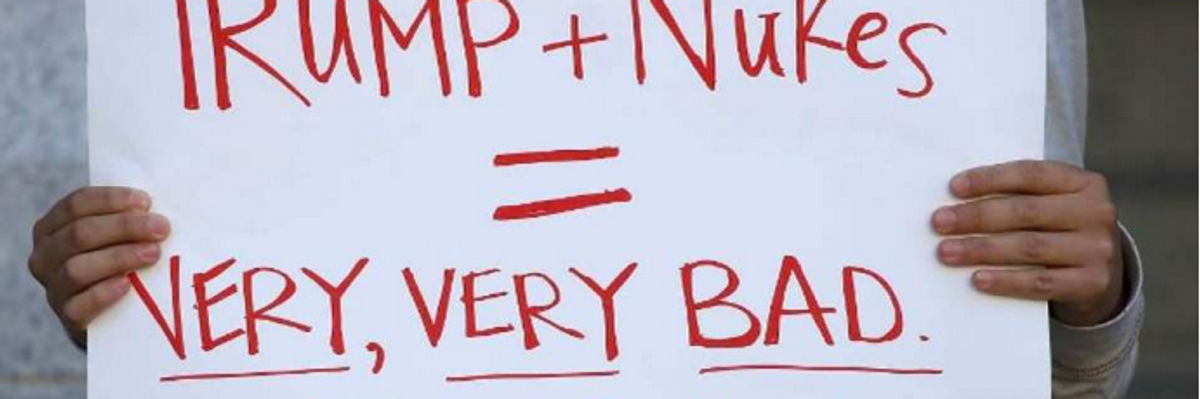 TRUMP + Nukes
=
VERY, VERY BAD.